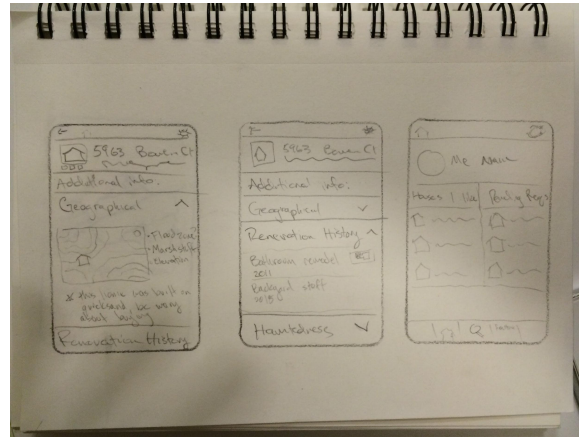 5963 Bower Ct
Additional info:
Geographical
• Flood zone?
• Marshship
• elevation
* this home was built on
quicksand, be wary
about buying
Renovation History
5963 Bower Ct
Additional info:
Geographical
Renovation History
Bathroom remodel
2011
Backyard stuff
2015
Hauntedness
Me Name
Houses I like
Pending Reqs